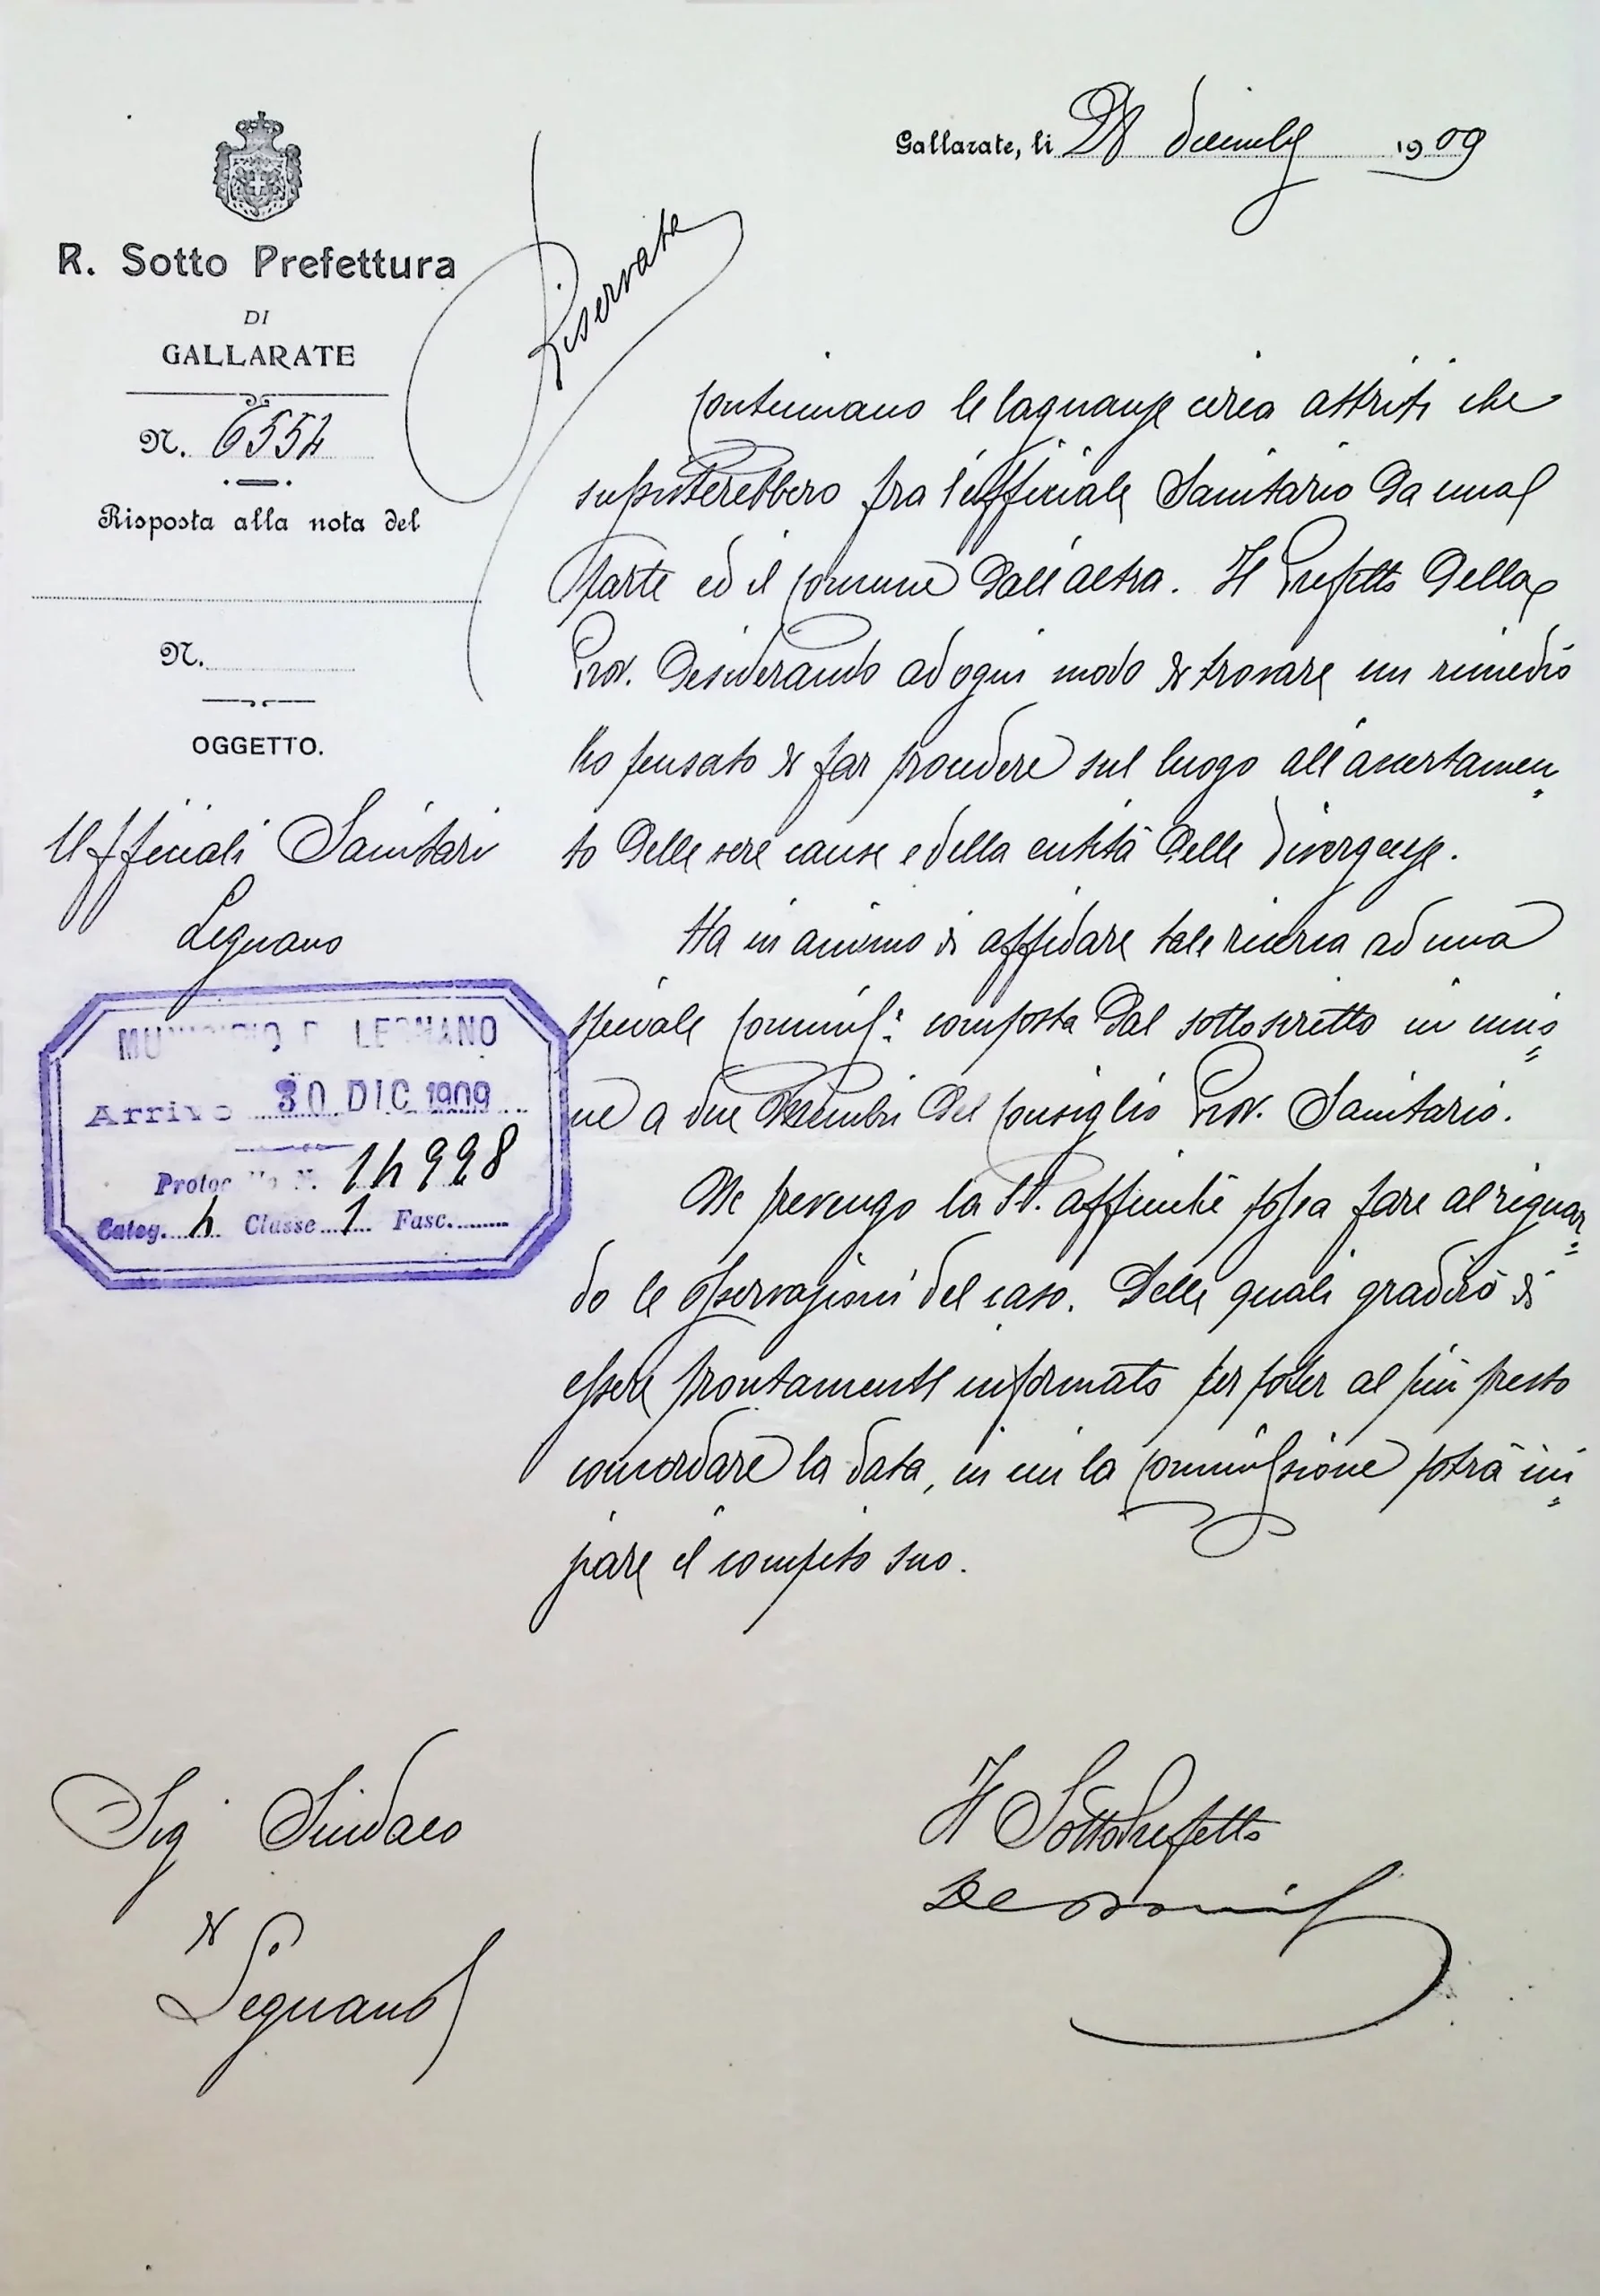 Gallarate, li 28 dicembre 1909
R. Sotto Prefettura
DI
GALLARATE
N. 6554
Risposta alla nota del
N.
OGGETTO.
Ufficiali Sanitari
Legnano
Riservata
MUNICIPIO DI LEGNANO
Arrivo 30 DIC 1909
Protocollo N. 14998
Categ. 4 Classe 1 Fasc.
Continuano le lagnanze circa attriti che
sussisterebbero fra l'ufficiale Sanitario da una
parte ed il Comune dall'altra. Il Prefetto della
Prov. desiderando ad ogni modo di trovare un rimedio
ha pensato di far procedere sul luogo all'accertamen=
to delle vere cause e della entità delle divergenze.
Ha in animo di affidare tale ricerca ad una
speciale Commiss: composta dal sottoscritto in unio=
ne a due Membri del Consiglio Prov. Sanitario.
Ne prevengo la S.V. affinchè possa fare al riguar=
do le osservazioni del caso. Delle quali gradirò di
essere prontamente informato per poter al più presto
concordare la data, in cui la Commissione potrà ini=
ziare il compito suo.
Il SottoPrefetto
Sig Sindaco
di
Legnano